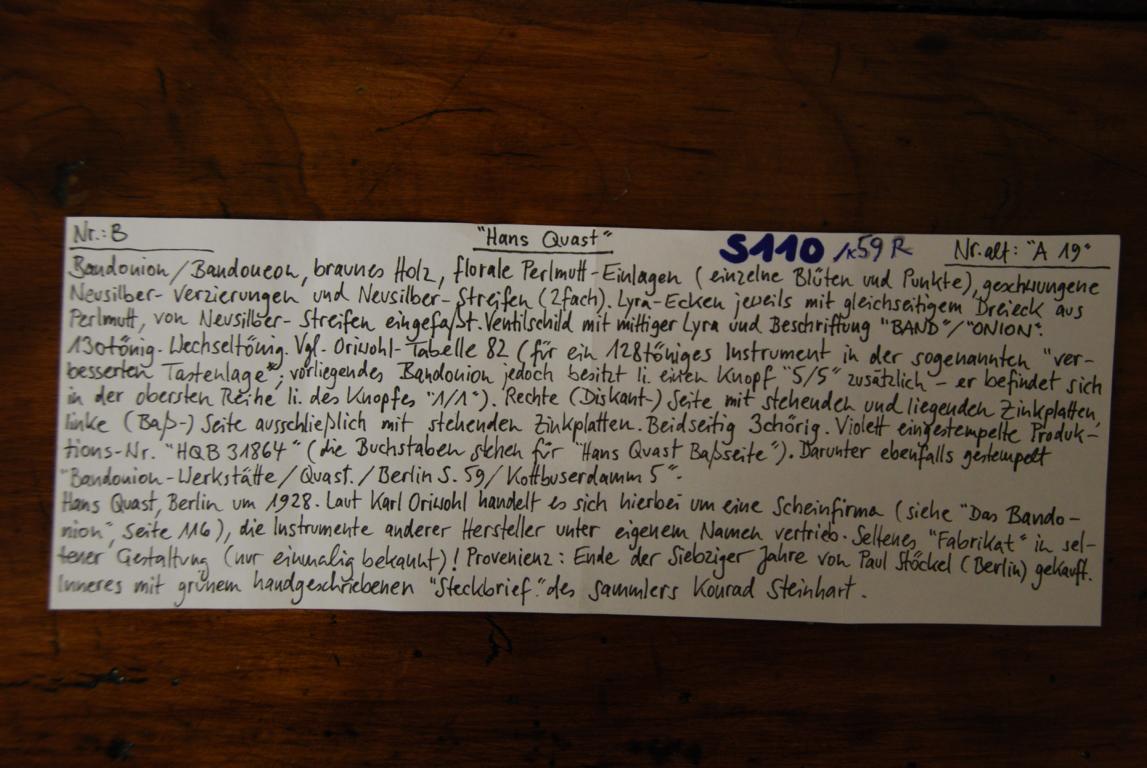 Nr.: B "Hans Quast" S110 /K59 R Nr. alt: "A 19"
Bandonion/Bandoneon, braunes Holz, florale Perlmutt-Einlagen (einzelne Blüten und Punkte), geschwungene
Neusilber-Verzierungen und Neusilber-Streifen (2fach). Lyra-Ecken jeweils mit gleichseitigem Dreieck aus
Perlmutt, von Neusilber-Streifen eingefaßt. Ventilschild mit mittiger Lyra und Beschriftung "BAND"/"ONION".
130tönig. Wechseltönig. Vgl. Oriwohl-Tabelle 82 (für ein 128töniges Instrument in der sogenannten "ver-
besserten Tastenlage"; vorliegendes Bandonion jedoch besitzt li. einen Knopf "5/5" zusätzlich – er befindet sich
in der obersten Reihe li. des Knopfes "1/1"). Rechte (Diskant-) Seite mit stehenden und liegenden Zinkplatten,
linke (Baß-) Seite ausschließlich mit stehenden Zinkplatten. Beidseitig 3chörig. Violett eingestempelte Produk-
tions-Nr. "HQB 31864" (die Buchstaben stehen für "Hans Quast Baßseite"). Darunter ebenfalls gestempelt
"Bandonion-Werkstätte/Quast./Berlin S.59/Kottbuserdamm 5".
Hans Quast, Berlin um 1928. Laut Karl Oriwohl handelt es sich hierbei um eine Scheinfirma (siehe "Das Bando-
nion", Seite 116), die Instrumente anderer Hersteller unter eigenem Namen vertrieb. Seltenes "Fabrikat" in sel-
tener Gestaltung (nur einmalig bekannt)! Provenienz: Ende der Siebziger Jahre von Paul Stöckel (Berlin) gekauft.
Inneres mit grünem handgeschriebenen "Steckbrief" des Sammlers Konrad Steinhart.